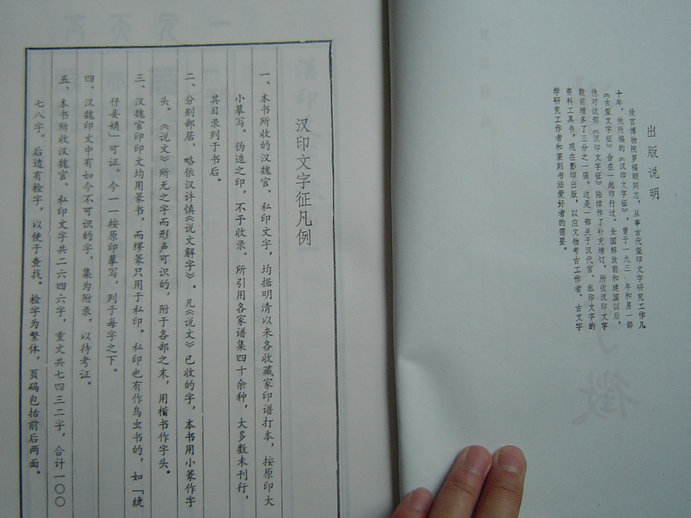 出版说明
故宫博物院罗福颐同志，从事古代玺印文字研究工作几
十年，他所编的《汉印文字征》，曾于一九三〇年和另一部
《古玺文字征》合在一起印行过。全国解放前和建国以后，
他对这部《汉印文字征》陆续作了补充增订，所收汉印文字
较前增多了三分之一强。这是一部关于汉代官、私印文字的
资料工具书，现在影印出版，以应文物考古工作者、古文字
学研究工作者和篆刻书法爱好者的需要。
汉印文字征凡例
一、本书所收的汉魏官、私印文字，均据明清以来各收藏家印谱打本，按原印大
小摹写。伪造之印，不予收录。所引用各家谱集四十余种，大多数未刊行，
其目录列于书后。
二、分别部居，略依汉许慎《说文解字》。凡《说文》已收的字，本书用小篆作字
头。《说文》所无之字而形声可识的，附于各部之末，用楷书作字头。
三、汉魏官印印文均用篆书，而缪篆只用于私印。私印也有作鸟虫书的，如「緁
伃妾娋」可证。今一一按原印摹写，列于每字之下。
四、汉魏印文中有如今不可识的字，集为附录，以待考证。
五、本书所收汉魏官、私印文字共二六四六字，重文共七四三二字，合计一〇〇
七八字。后边有检字，以便于查找。检字为繁体，页码包括前后两面。